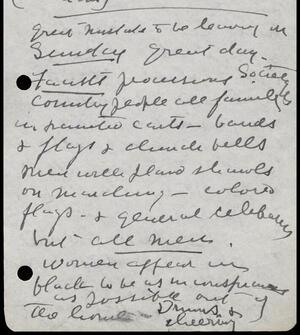 great mistake to be leaving on
Sunday great day -
Fausts processions Society
country people all families
in painted carts - bands
& flags & church bells
men with plaid shawls
on marching - colored
flags - & general celebra
but all men.
Women appear in
black to be as inconspicuous
as possible out of
the home - Drums &
cheering